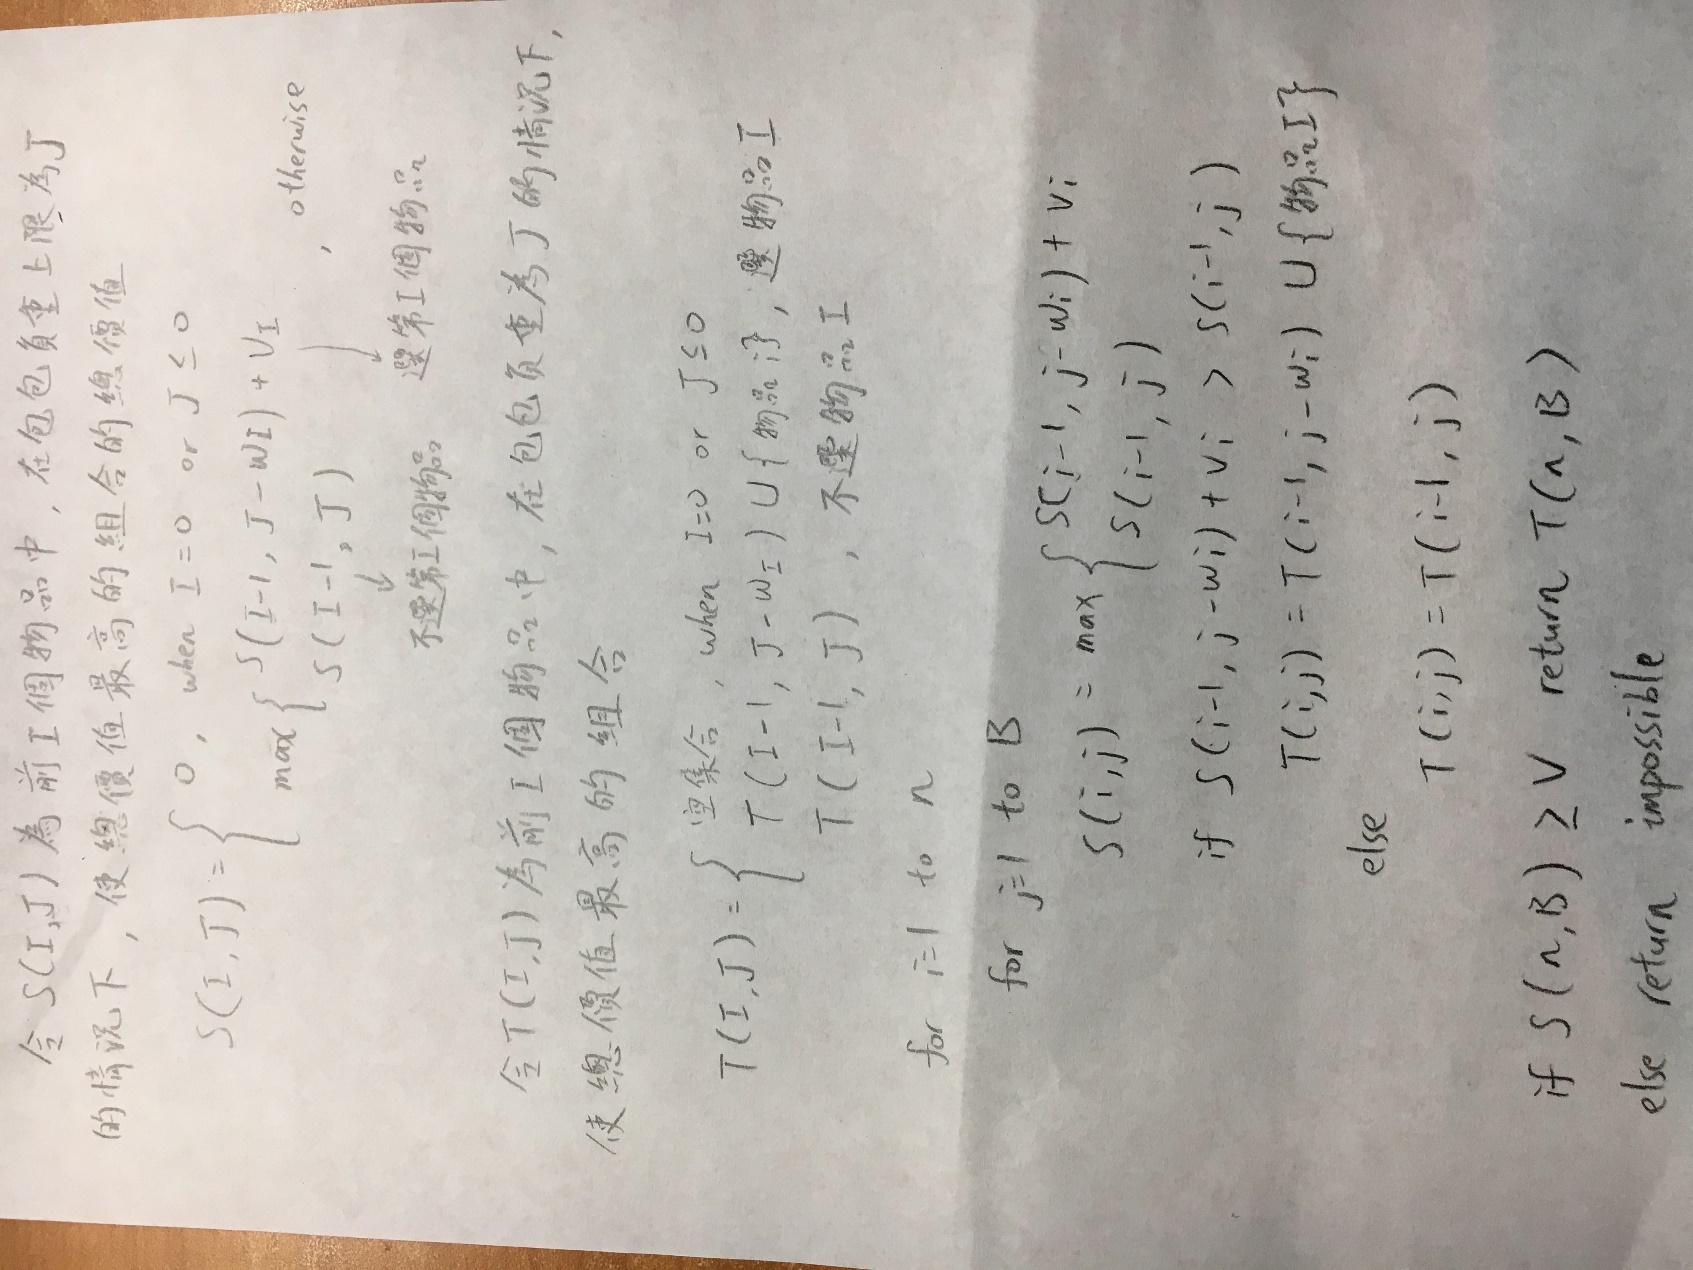 令 S(I,J) 為前 I 個物品中, 在包包負重上限為 J
的情況下, 使總價值最高的組合的總價值
S(I,J) = { 0, when I=0 or J ≤ 0
max { S(I-1, J-wI) + VI
S(I-1, J) , otherwise
不選第I個物品 選第I個物品
令 T(I,J) 為前 I 個物品中, 在包包負重為 J 的情況下,
使總價值最高的組合
T(I,J) = { 空集合, when I=0 or J ≤ 0
T(I-1, J-wI) ∪ {物品i}, 選物品I
T(I-1, J), 不選物品I
for i=1 to n
for j=1 to B
S(i,j) = max { S(i-1, j-wi) + vi
S(i-1, j)
if S(i-1, j-wi) + vi > S(i-1, j)
T(i,j) = T(i-1, j-wi) ∪ {物品I}
else
T(i,j) = T(i-1, j)
if S(n,B) ≥ V return T(n,B)
else return impossible